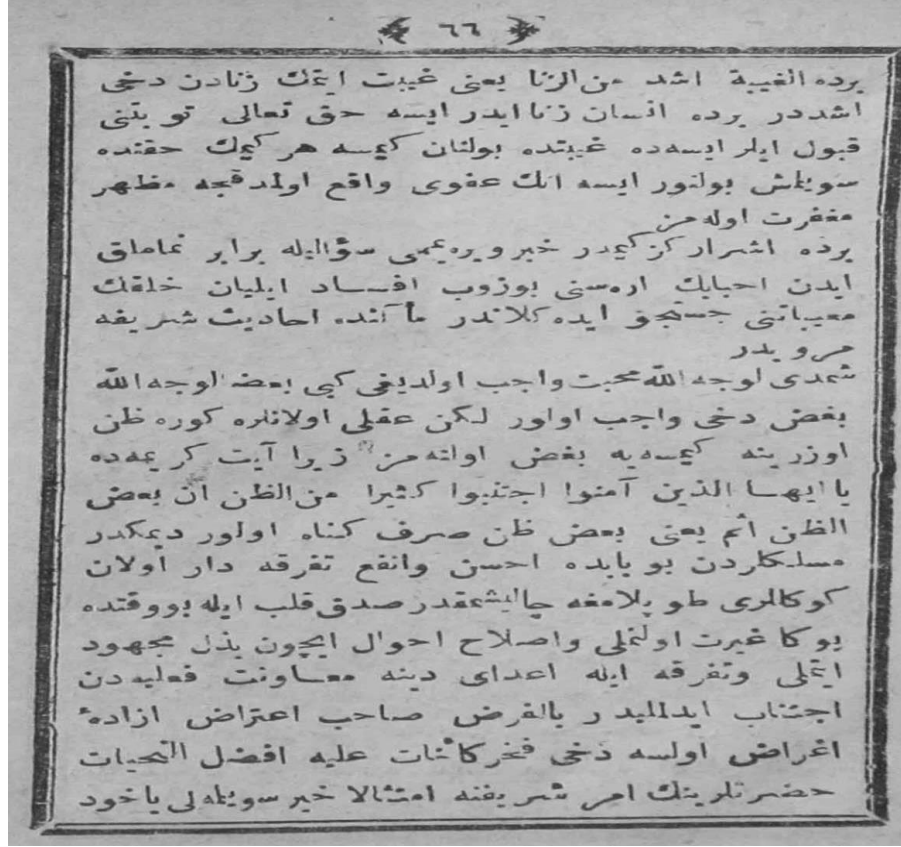 ٦٦
برده الغيبة اشد من الزنا يعنى غيبت ايتمك زنادن دخى
اشددر برده انسان زنا ايدر ايسه حق تعالى توبتنى
قبول ايلر ايسه‌ده غيبتده بولنان كيمسه هر كيمك حقنده
سويلمش بولنور ايسه انك عفوى واقع اولمدقجه مظهر
مغفرت اوله‌مز
برده اشراركز كيمدر خبر ويره‌يممى سؤاليله برابر نماملق
ايدن احبابك اره‌سنى بوزوب افساد ايليان خلقك
معيباتنى جستجو ايده‌كلاندر مأكنده احاديث شريفه
مرويدر
شمدى لوجه الله محبت واجب اولديغى كبى بعضه لوجه الله
بغض دخى واجب اولور لكن عقلى اولانلره كوره ظن
اوزرينه كيمسه‌يه بغض اولنه‌مز زيرا آيت كريمه‌ده
يا ايها الذين آمنوا اجتنبوا كثيرا من الظن ان بعض
الظن اثم يعنى بعض ظن صرف كناه اولور ديمكدر
مسلكلردن بو بابده احسن وانفع تفرقه دار اولان
كوكللرى طوپلامغه چالیشمقدر صدق قلب ايله بووقتده
بوكا غيرت اولنملى واصلاح احوال ايچون بذل مجهود
ايتملى وتفرقه ايله اعداى دينه معاونت فعليه‌دن
اجتناب ايدلمليدر بالفرض صاحب اعتراض ازادهٔ
اغراض اولسه دخى فخر كائنات عليه افضل التحيات
حضرتلرينك امر شريفنه امتثالا خير سويلملى ياخود